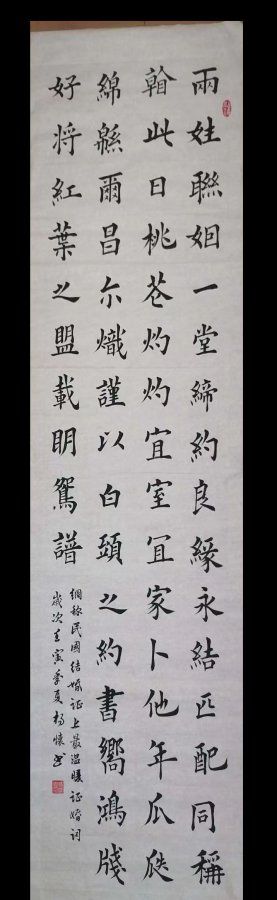 兩姓聯姻一堂締約良緣永結匹配同稱
看此日桃花灼灼宜室宜家卜他年瓜瓞
綿緜爾昌尒熾謹以白頭之約書嚮鴻牋
好将紅葉之盟載眀鴛譜
網稱民國结婚证上最温暖证婚词
歲次壬寅季夏杨懷书